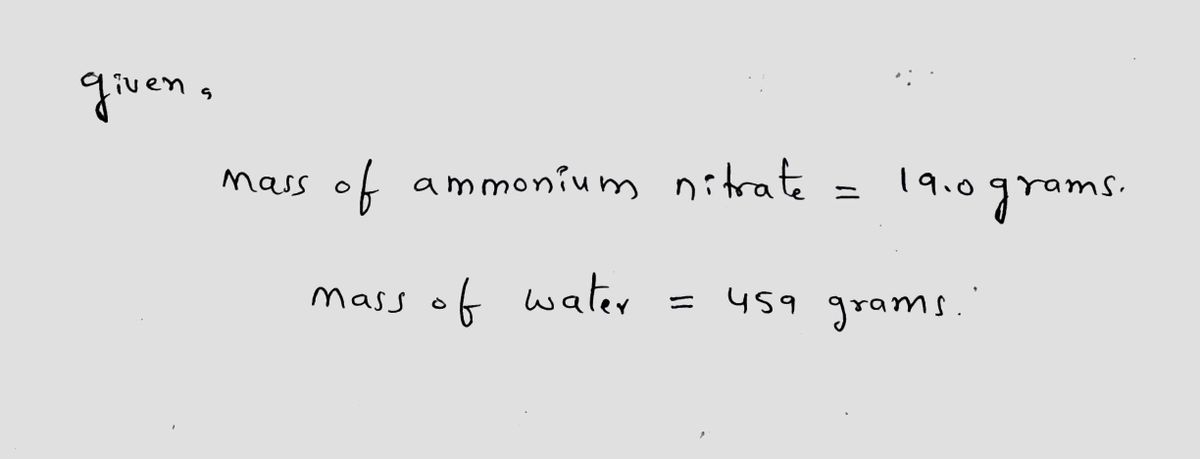 given,
mass of ammonium nitrate = 19.0 grams.
mass of water = 459 grams.